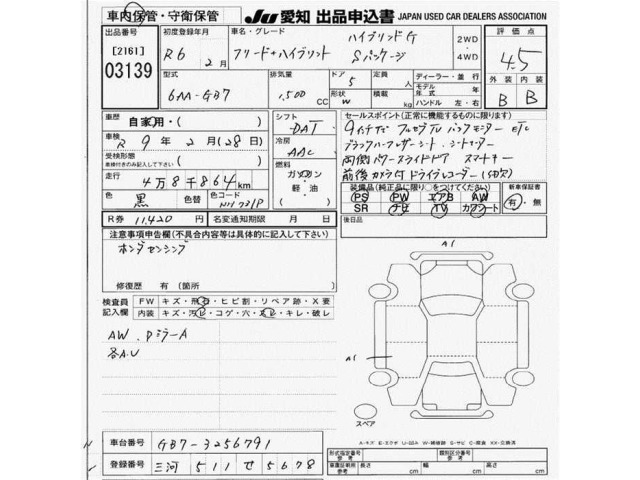 車内保管・守衛保管
JU 愛知 出品申込書 JAPAN USED CAR DEALERS ASSOCIATION
出品番号 [2161] 03139
初度登録年月 R6年 2月
車名・グレード フリード+ハイブリット ハイブリッドG Sパッケージ
2WD・4WD
評価点 4.5
型式 6AA-GB7
排気量 1,500 CC
ドア 5
形状 W
定員 人
積載 kg
ディーラー・並行
モデル年式 年
ハンドル 左・右
外装 内装
B B
車歴 自家用・( )
車検 R 9年 2月(28日)
受検形態 車検付きのみ記入して下さい ( )
走行 4万8千864km
色 黒 色替 色コード
R券 11,420円 名変通知期限 月 日
シフト DAT
冷房 AAC
燃料 ガソリン 軽油 ( )
セールスポイント(正常に機能するものに限ります)
9インチナビ フルセグTV バックモニター ETC
ブラックハーフレザーシート シートヒーター
両側パワースライドドア スマートキー
前後カメラ付ドライブレコーダー(SD欠)
装備品(純正品に限り○をつけてください)
PS PW エアB AW
SR ナビ TV カワシート
新車保証書 有・無
後日品
注意事項申告欄(不具合内容等は具体的に記入して下さい)
ホンダセンシング
修復歴 有(箇所 )
検査員記入欄
FW キズ・飛石・ヒビ割・リペア跡・X要
内装 キズ・汚レ・コゲ・穴・スレ・キレ・破レ
AW.PミラーA
各A.U
A1
A1
スペア
A-キズ E-エクボ U-凹み W-補修跡 S-サビ C-腐食 XX-交換済
車台番号 GB7-3256791
登録番号 三河 511 せ 5678
形式指定番号 参考
類別区分番号 参考
車庫証明用 参考 長さ cm 幅 cm 高さ cm